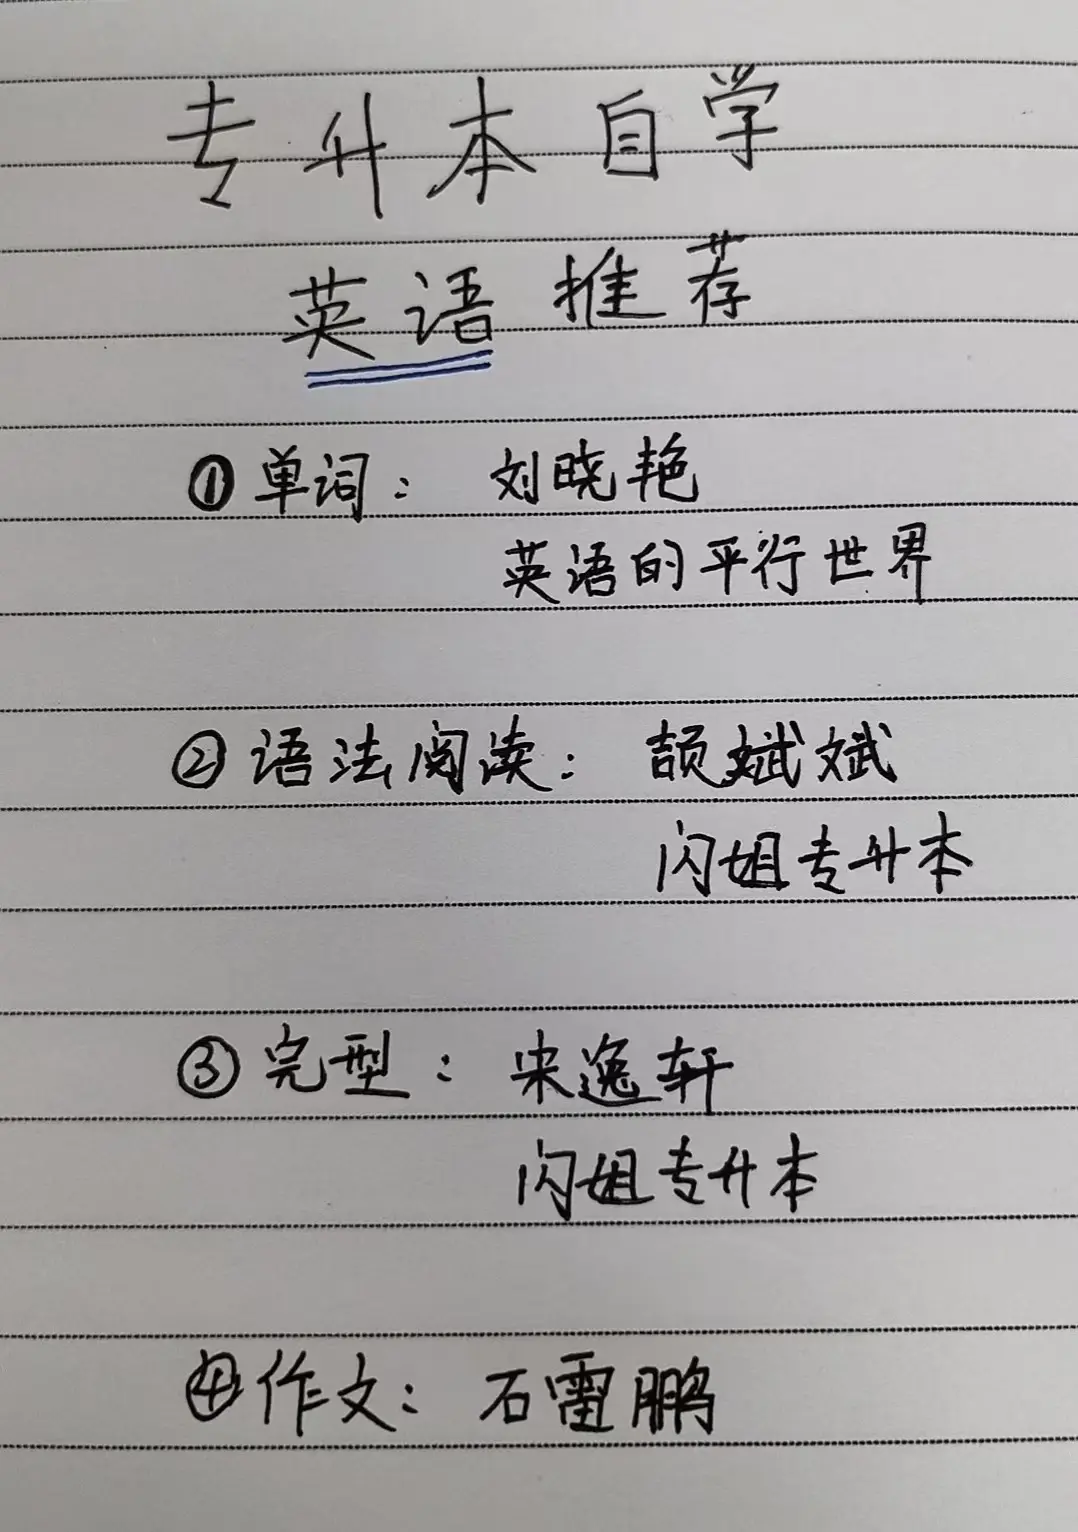 专升本自学
英语推荐
①单词：刘晓艳
英语的平行世界
②语法阅读：颉斌斌
闪姐专升本
③完型：宋逸轩
闪姐专升本
④作文：石雷鹏